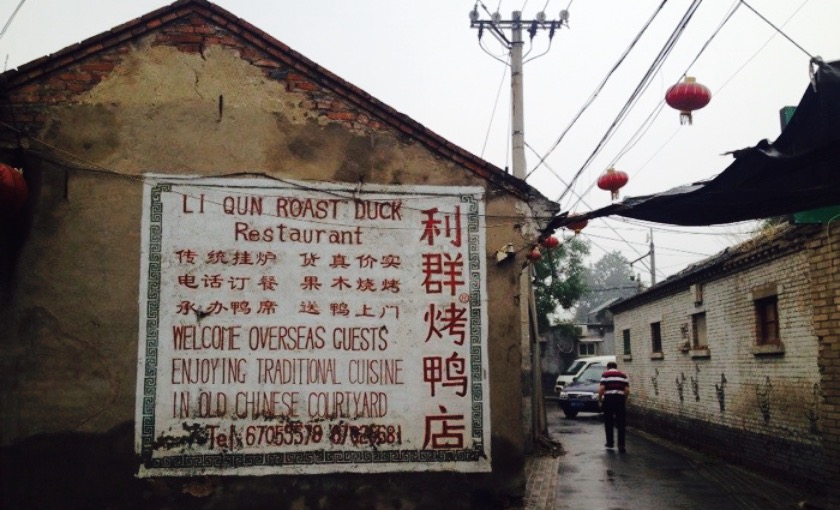 LI QUN ROAST DUCK
Restaurant
传统挂炉 货真价实
电话订餐 果木烧烤
承办鸭席 送鸭上门
WELCOME OVERSEAS GUESTS
ENJOYING TRADITIONAL CUISINE
IN OLD CHINESE COURTYARD
Tel 67055578
利群®烤鸭店